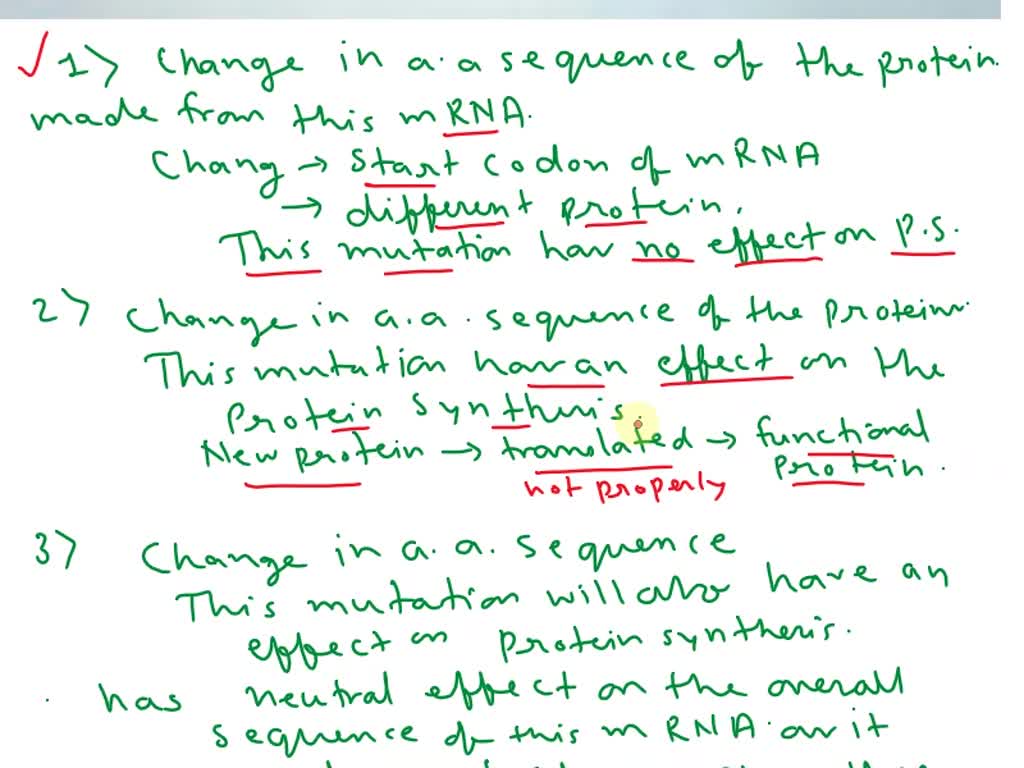 1> Change in a.a sequence of the protein
made from this mRNA.
Chang → Start codon of mRNA
→ different protein.
This mutation hav no effect on P.S.
2> Change in a.a. sequence of the protein
This mutation hav an effect on the
Protein Synthesis.
New protein → translated → functional
not properly protein.
3> Change in a.a. sequence
This mutation will also have an
effect on protein synthesis.
has neutral effect on the overall
sequence of this mRNA as it